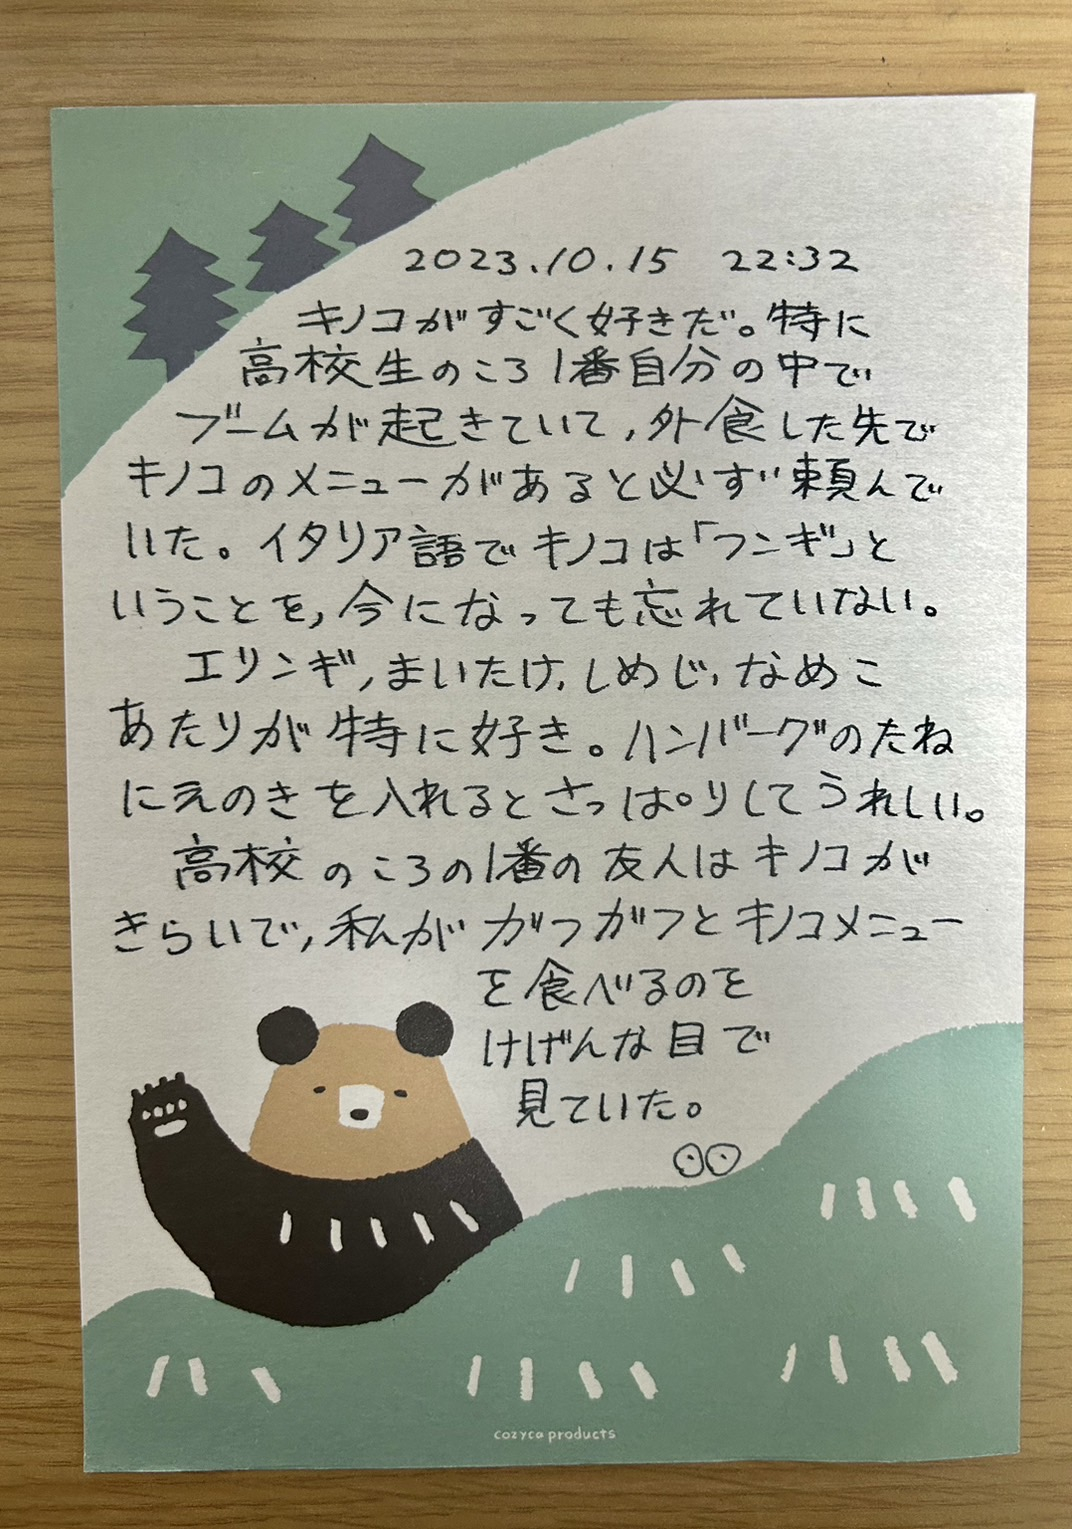 2023.10.15 22:32
キノコがすごく好きだ。特に
高校生のころ1番自分の中で
ブームが起きていて,外食した先で
キノコのメニューがあると必ず頼んで
いた。イタリア語でキノコは「フンギ」と
いうことを,今になっても忘れていない。
エリンギ,まいたけ,しめじ,なめこ
あたりが特に好き。ハンバーグのたね
にえのきを入れるとさっぱりしてうれしい。
高校のころの1番の友人はキノコが
きらいで,私がガツガツとキノコメニュー
を食べるのを
けげんな目で
見ていた。
cozyca products